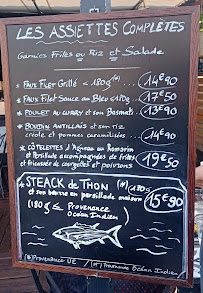 LES ASSIETTES COMPLÈTES
Garnies Frites ou Riz et Salade
* FAUX FILET Grillé < 180g(*) ... 14€90
* FAUX FILET Sauce au Bleu <180g 17€50
* POULET au CURRY et son Basmati.. 13€90
* BOUDIN ANTILLAIS et son riz
créole et pommes caramélisées ... 14€90
* CÔTELETTES d'Agneau au Romarin
et Persillade accompagnées de frites
et fricassée de courgettes et poivrons 19€50
* STEACK de THON (*) 180g
et son beurre en persillade maison 15€90
(180g ≤ Provenance
Océan Indien)
(*) Provenance UE / (*) Provenance Océan Indien